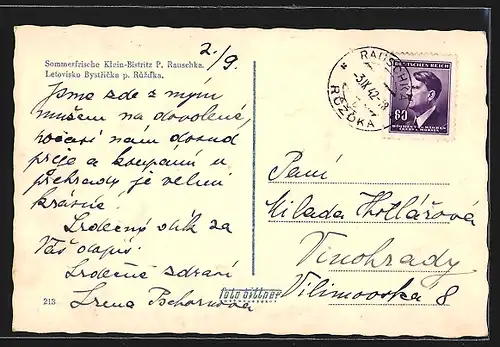 2./9.
Sommerfrische Klein-Bistritz P. Rauschka.
Letovisko Bystřička p. Růžďka.
Jsme zde s mým
mužem na dovolené,
počasí nám dosud
přeje a koupání u
přehrady je velmi
krásné.
Srdečný dík za
Váš dopis.
Srdečně zdraví
Irena
213
foto dittner
RAUSCHKA
3.IX.42-18
RŮŽĎKA
DEUTSCHES REICH
80
BÖHMEN U. MÄHREN
ČECHY A MORAVA
Paní
Milada Kotlářová
Vinohrady
Vilímovská 8